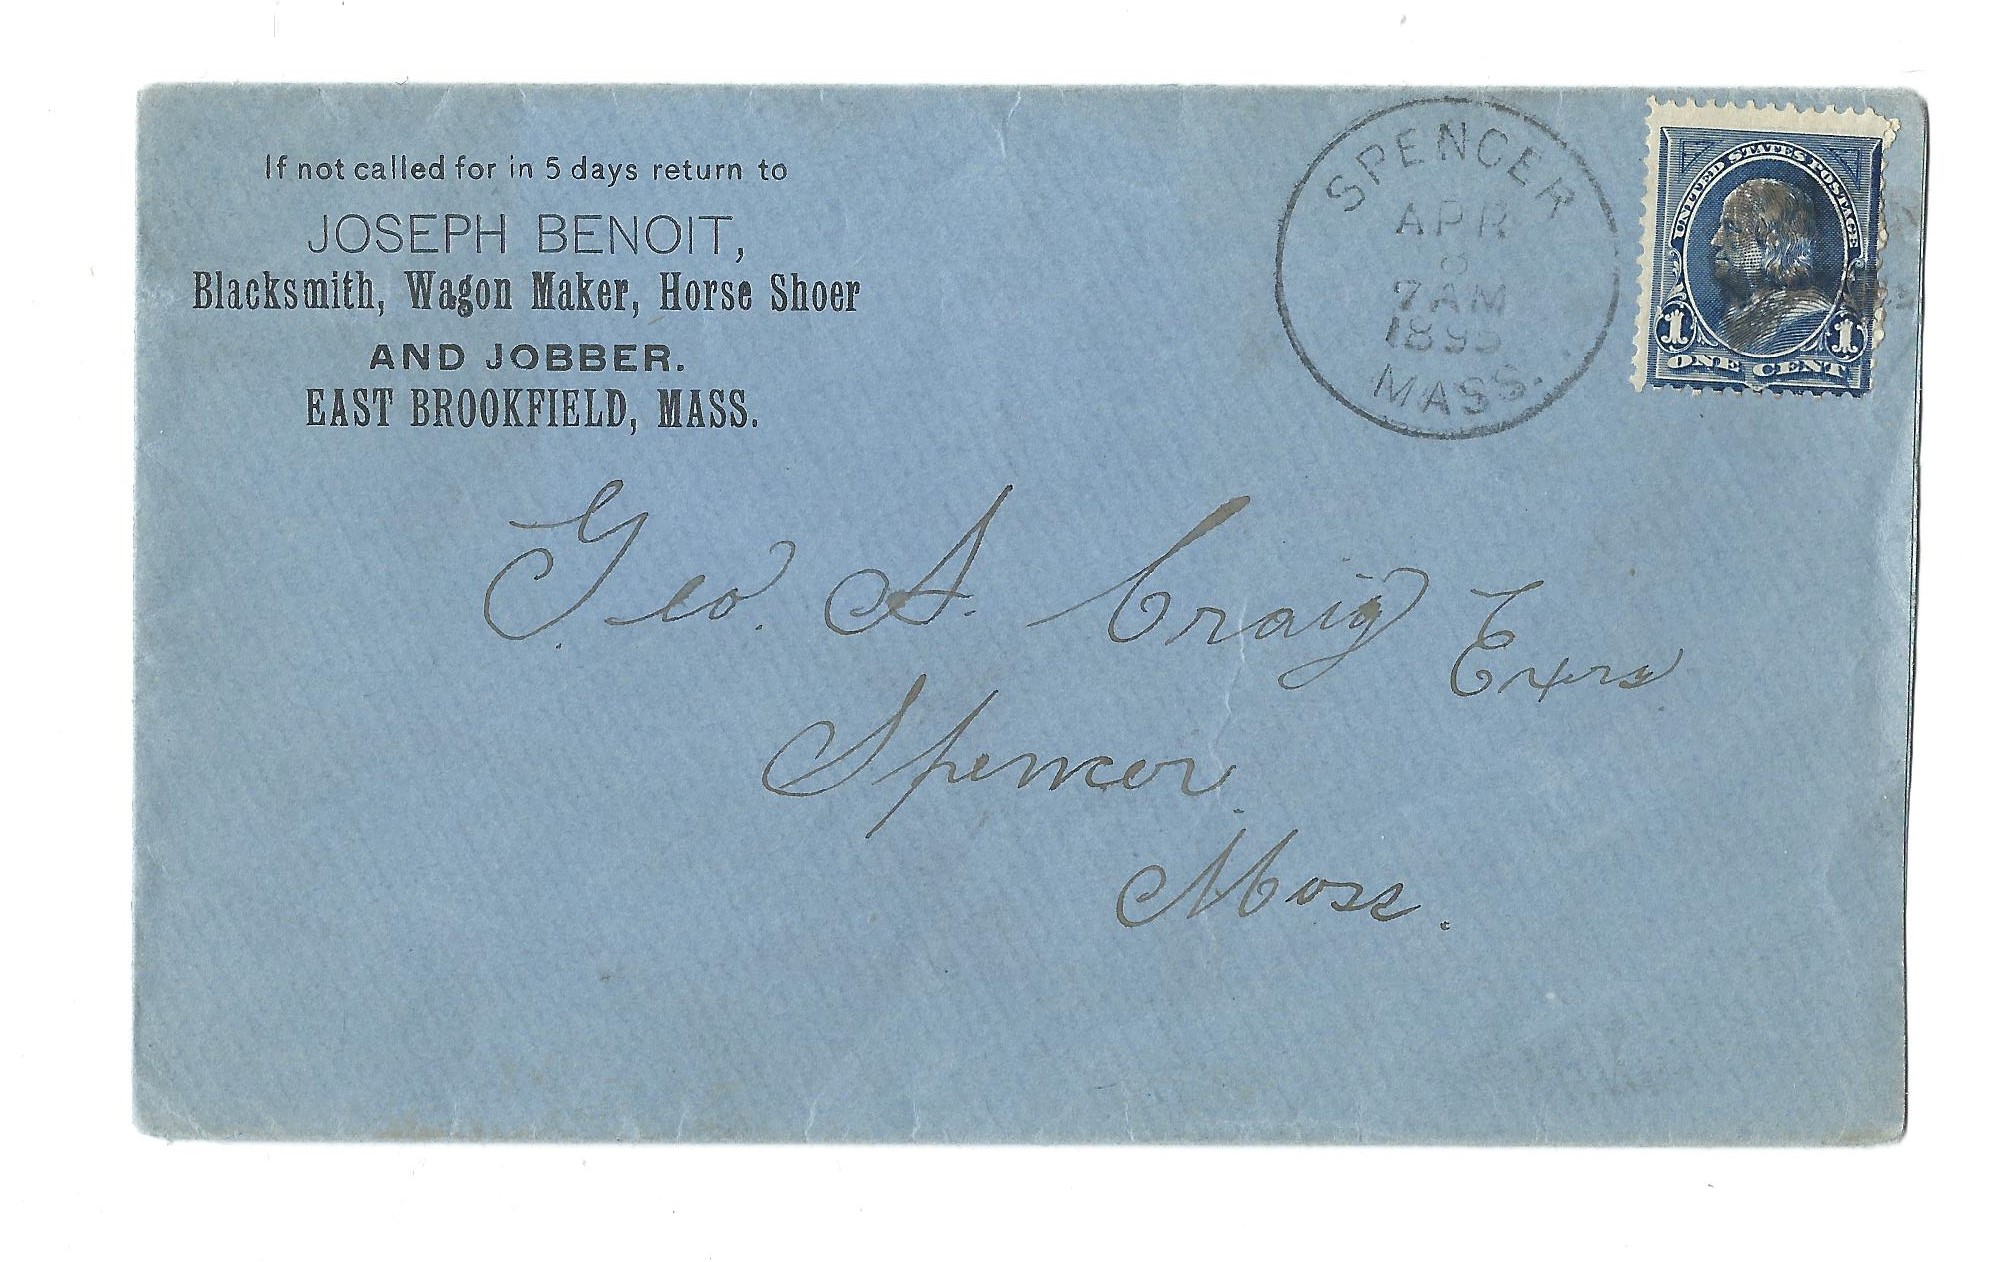 If not called for in 5 days return to
JOSEPH BENOIT,
Blacksmith, Wagon Maker, Horse Shoer
AND JOBBER.
EAST BROOKFIELD, MASS.
SPENCER
APR
7AM
1895
MASS.
UNITED STATES POSTAGE
1 1
ONE CENT
Geo. A. Craig Exrs
Spencer
Mass.